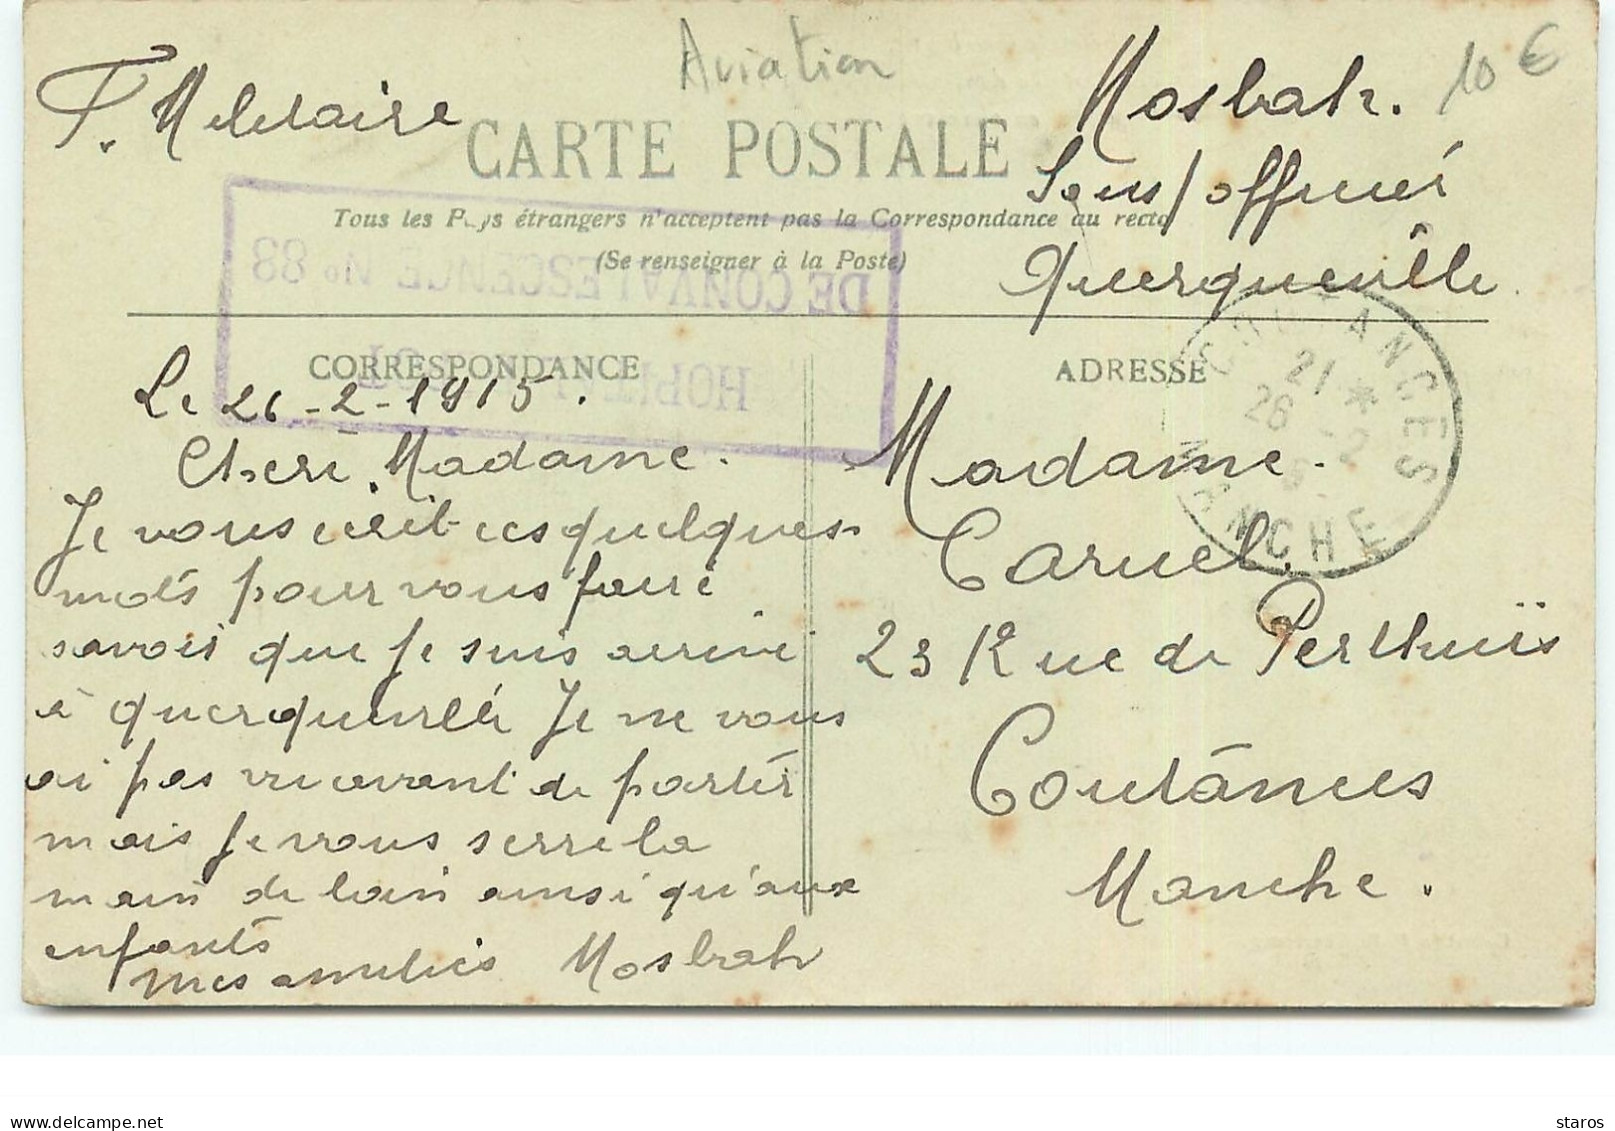 Aviation
10 €
F. Militaire
CARTE POSTALE
Mosbah.
Sous/officier
Querqueville
Tous les Pays étrangers n'acceptent pas la Correspondance au recto
(Se renseigner à la Poste)
DE CONVALESCENCE No 88
HOPITAL
CORRESPONDANCE
ADRESSE
COUTANCES
21 *
26 -2
MANCHE
Le 26-2-1915.
Cheré Madame.
Je vous ecrit ces quelques
mots pour vous faire
savoir que je suis arrivé
à querqueville Je ne vous
ai pas vu avant de partir
mais Je vous serre la
main de loin ainsi qu'aux
enfants
mes amitiés Mosbah
Madame.
Caruel.
23 Rue de Perthuis
Coutances
Manche.
staros
www.delcampe.net